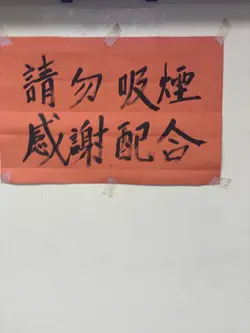 請勿吸煙
感謝配合